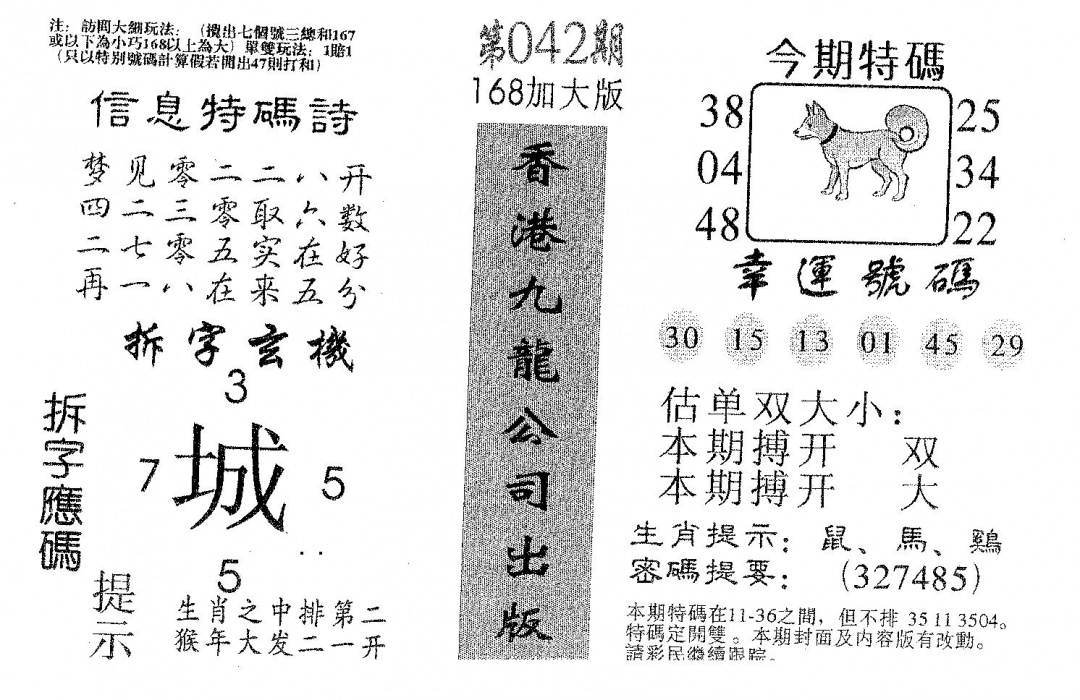 注：訪問大細玩法：（攪出七個號三總和167
或以下為小巧168以上為大）單雙玩法：1賠1
（只以特别號碼計算假若開出47則打和）
信息特碼詩
梦见零二二八开
四二三零取六数
二七零五实在好
再一八在来五分
拆字玄機
3
拆字應碼
7
城
5
5
提示
生肖之中排第二
猴年大发二一开
第042期
168加大版
香港九龍公司出版
今期特碼
38
25
04
34
48
22
幸運號碼
30 15 13 01 45 29
估单双大小：
本期搏开 双
本期搏开 大
生肖提示：鼠、馬、鷄
密碼提要：（327485）
本期特碼在11-36之間，但不排 35 11 3504。
特碼定開雙。本期封面及内容版有改動。
請彩民繼續跟踪。